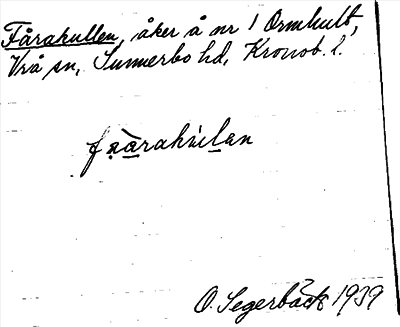 Fårahullen, åker å nr 1 Ormhult,
Vrå sn, Sunnerbo hd, Kronob. l.
O. Segerbäck 1939